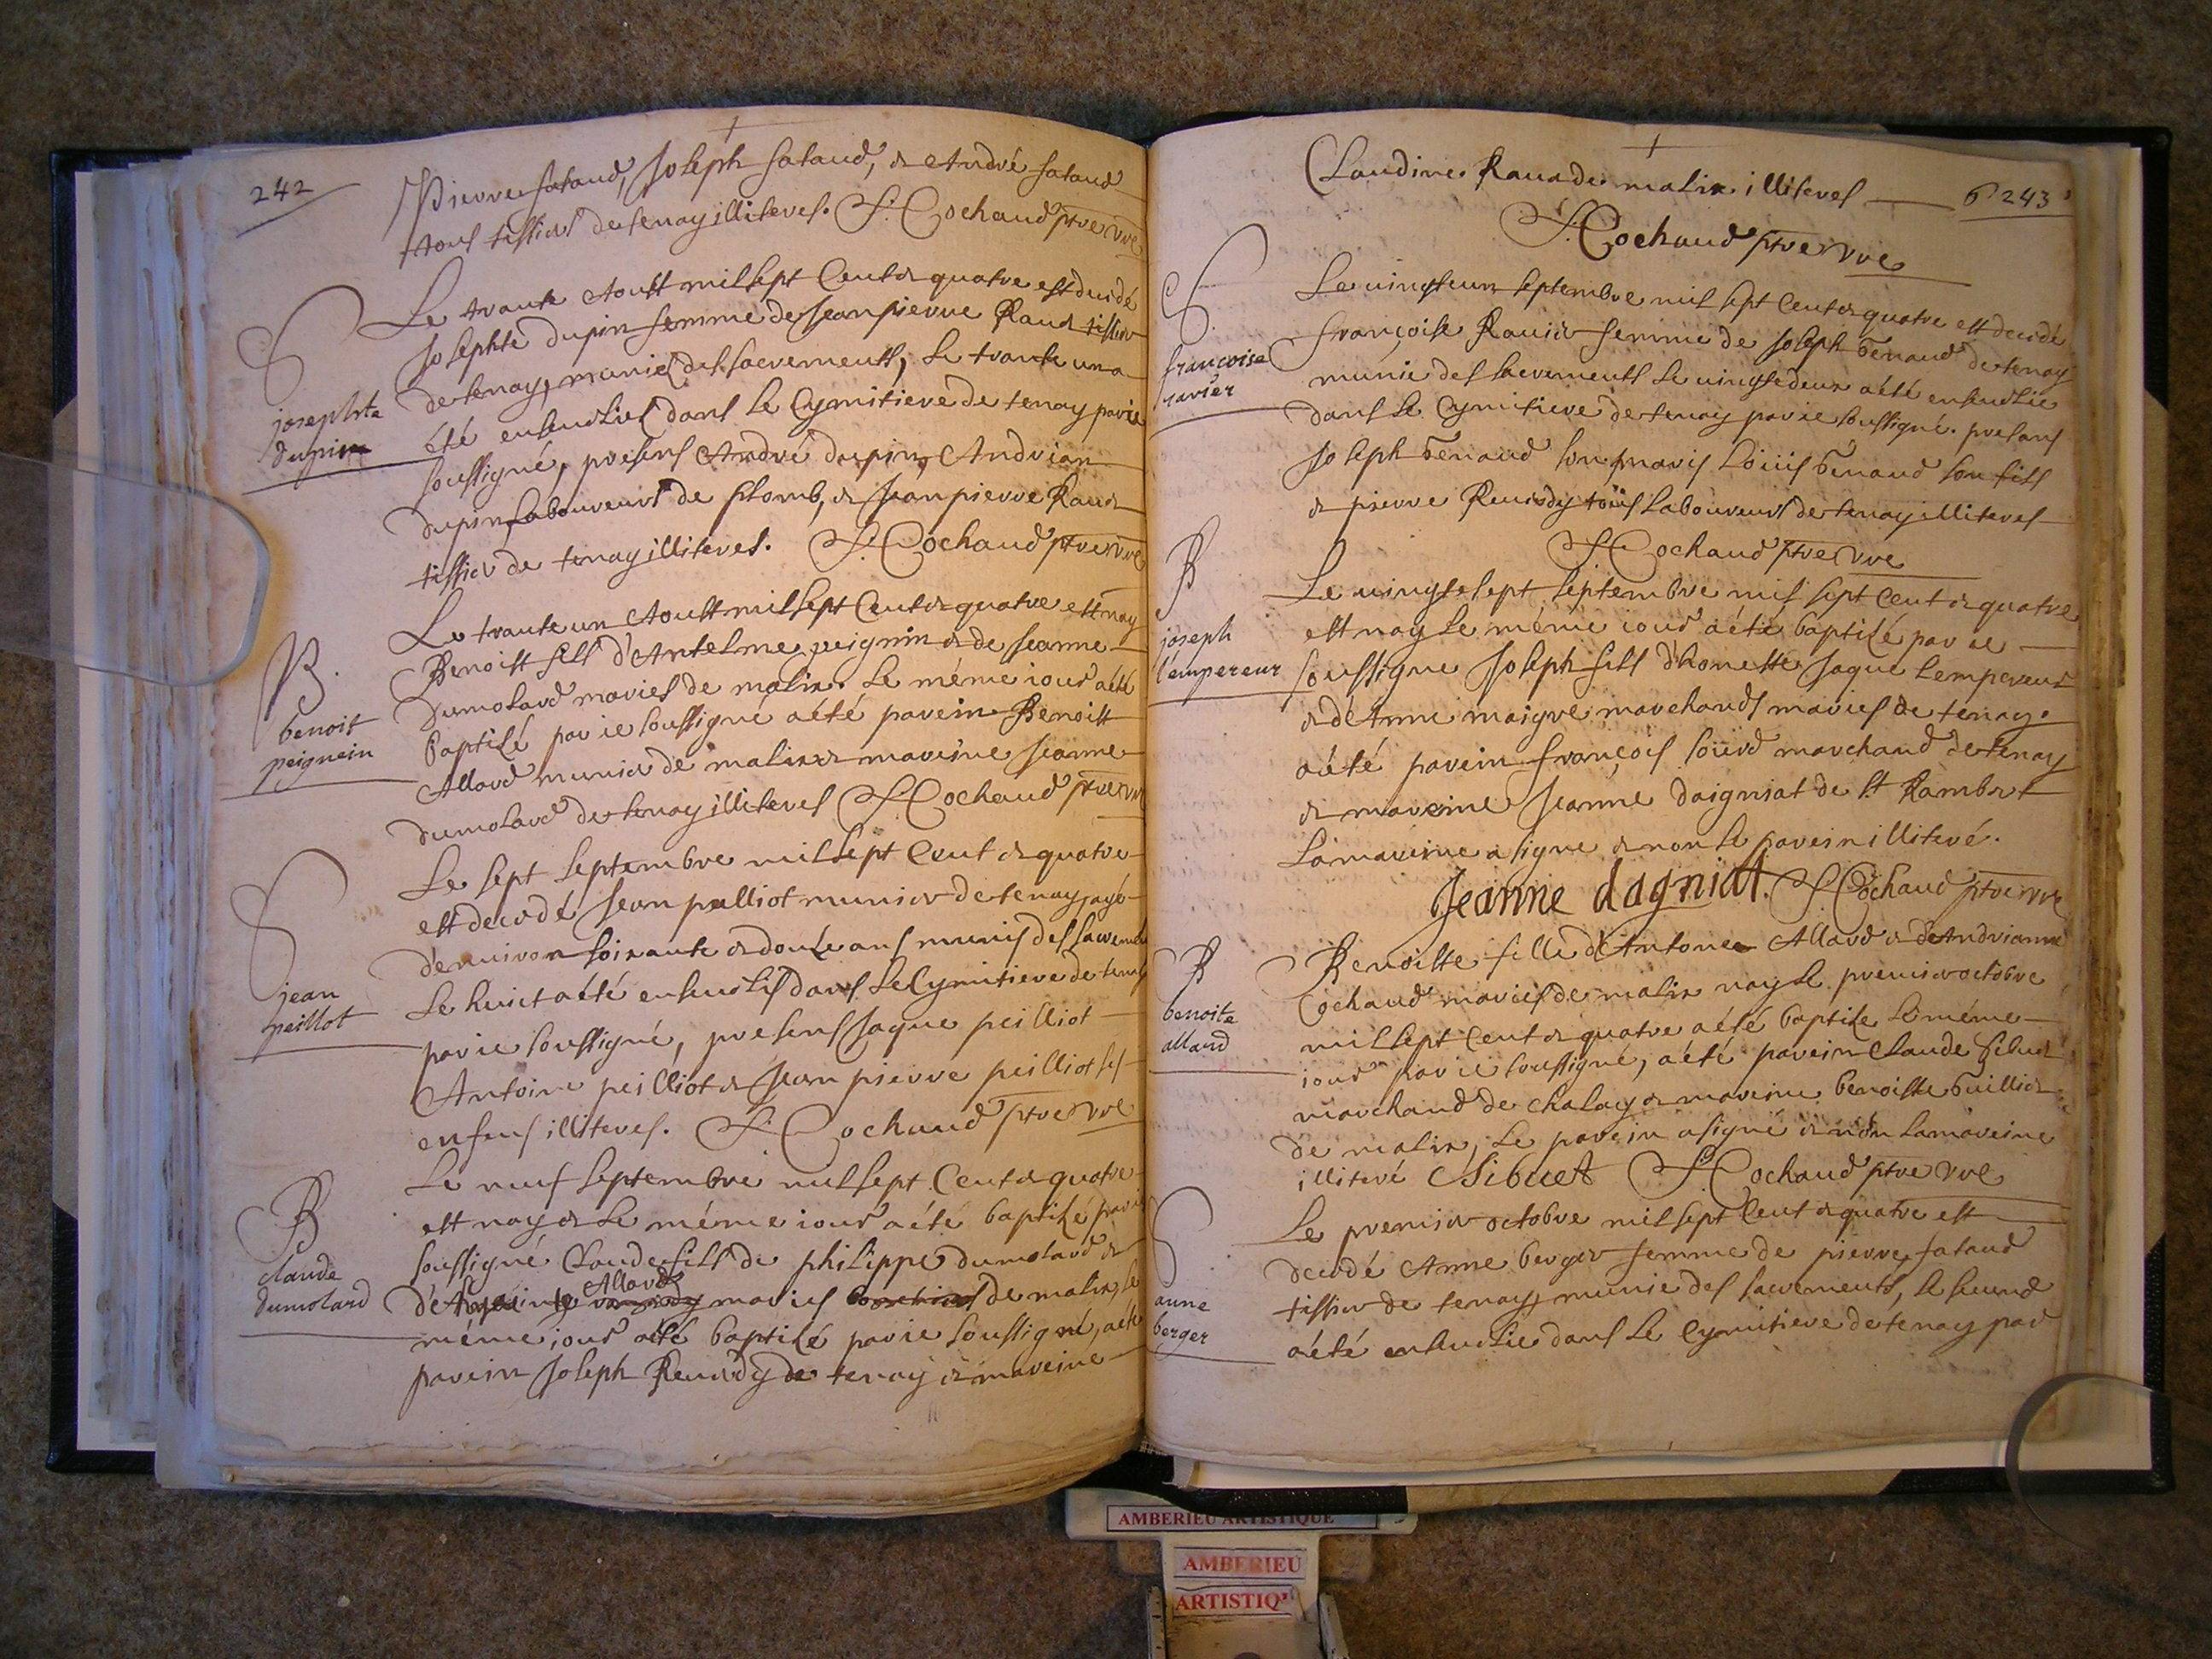 242
Pierre sataud, Joseph sataud, & André sataud
tous tissiers de tenay illiteres. F. Cochaud ptre vre
Le trante Aoust mil sept Cent & quatre est decedé
josephte dupin
Josephte dupin femme de Jean pierre Raud tissier
de tenay, munie des sacrements, le trante un a
été ensevelie dans le Cymitiere de tenay par ie
soussigné, presens André dupin, Andrian
dupin laboureurs de plomb, & Jean pierre Raud
tissier de tenay illiteres. F. Cochaud ptre vre
B.
benoit peignein
Le trante un Aoust mil sept Cent & quatre est nay
Benoist fils d'Antelme peignin & de Jeanne
dumolard maries de malix. Le méme iour a été
baptisé par ie soussigné a été parein Benoist
Allard munier de malix & mareine Jeanne
dumolard de tenay illiteres F. Cochaud ptre vre
jean peillot
Le sept septembre mil sept Cent & quatre
est decedé Jean pelliot munier de tenay, agé
d'environ soixante & douze ans munis des sacrements
Le huict a été ensevelis dans Le Cymitiere de tenay
par ie soussigné, presens Jaque peilliot
Antoine peilliot & Jean pierre peilliot ses
enfens illiteres. F. Cochaud ptre vre
B
claude dumolard
Le neuf septembre mil sept Cent & quatre
est nay & Le méme iour a été baptisé par ie
soussigné Claude fils de philippe dumolard &
Allard
maries de malix, le
méme iour a été baptisé par ie soussigné, a été
parein Joseph Reverdy de tenay & mareine
6 243
Claudine Ravade malix illiteres
F. Cochaud ptre vre
francoise ravier
Le vingt un septembre mil sept Cent & quatre est decedé
françoise Ravier femme de Joseph benaud de tenay
munie des sacrements Le vingt deux a été ensevelie
dans Le Cymitiere de tenay par ie soussigné. presans
Joseph benaud son maris Loiiis benaud son fils
& pierre Reverdy toüs Laboureurs de tenay illiteres
F. Cochaud ptre vre
B
joseph l'empereur
Le vingt sept septembre mil sept Cent & quatre
est nay Le méme iour a été baptisé par ie
soussigne Joseph fils d'honeste Jaque Lempereur
& d'Anne maigre marchands maries de tenay.
a été parein françois soürd marchand de tenay
& mareine Jeanne daigniat de St Rambert
La mareine a signé & non Le parein illiteré.
Jeanne dagniat. F. Cochaud ptre vre
B
benoite allard
Benoiste fille d'Antoine Allard & d'Andrianne
Cochaud maries de malix nay Le premier octobre
mil sept Cent & quatre a été baptize Le méme
iour par ie soussigné, a été parein Claude Sibuet
marchand de chaley & mareine benoiste buillier
de malix, Le parein a signé & non La mareine
illiteré CSibuet F. Cochaud ptre vre
anne berger
Le premier octobre mil sept Cent & quatre est
decedé Anne berger femme de pierre sataud
tissier de tenay, munie des sacrements, le second
a été ensevelie dans Le Cymitiere de tenay par
AMBERIEU ARTISTIQUE
AMBERIEU
ARTISTIQ